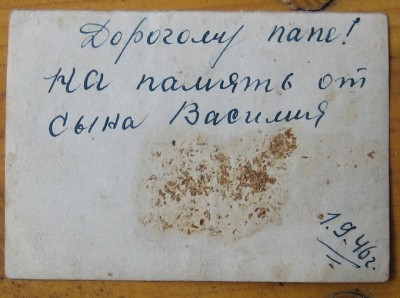 Дорогому папе!
На память от
сына Василия
1.9.46г.